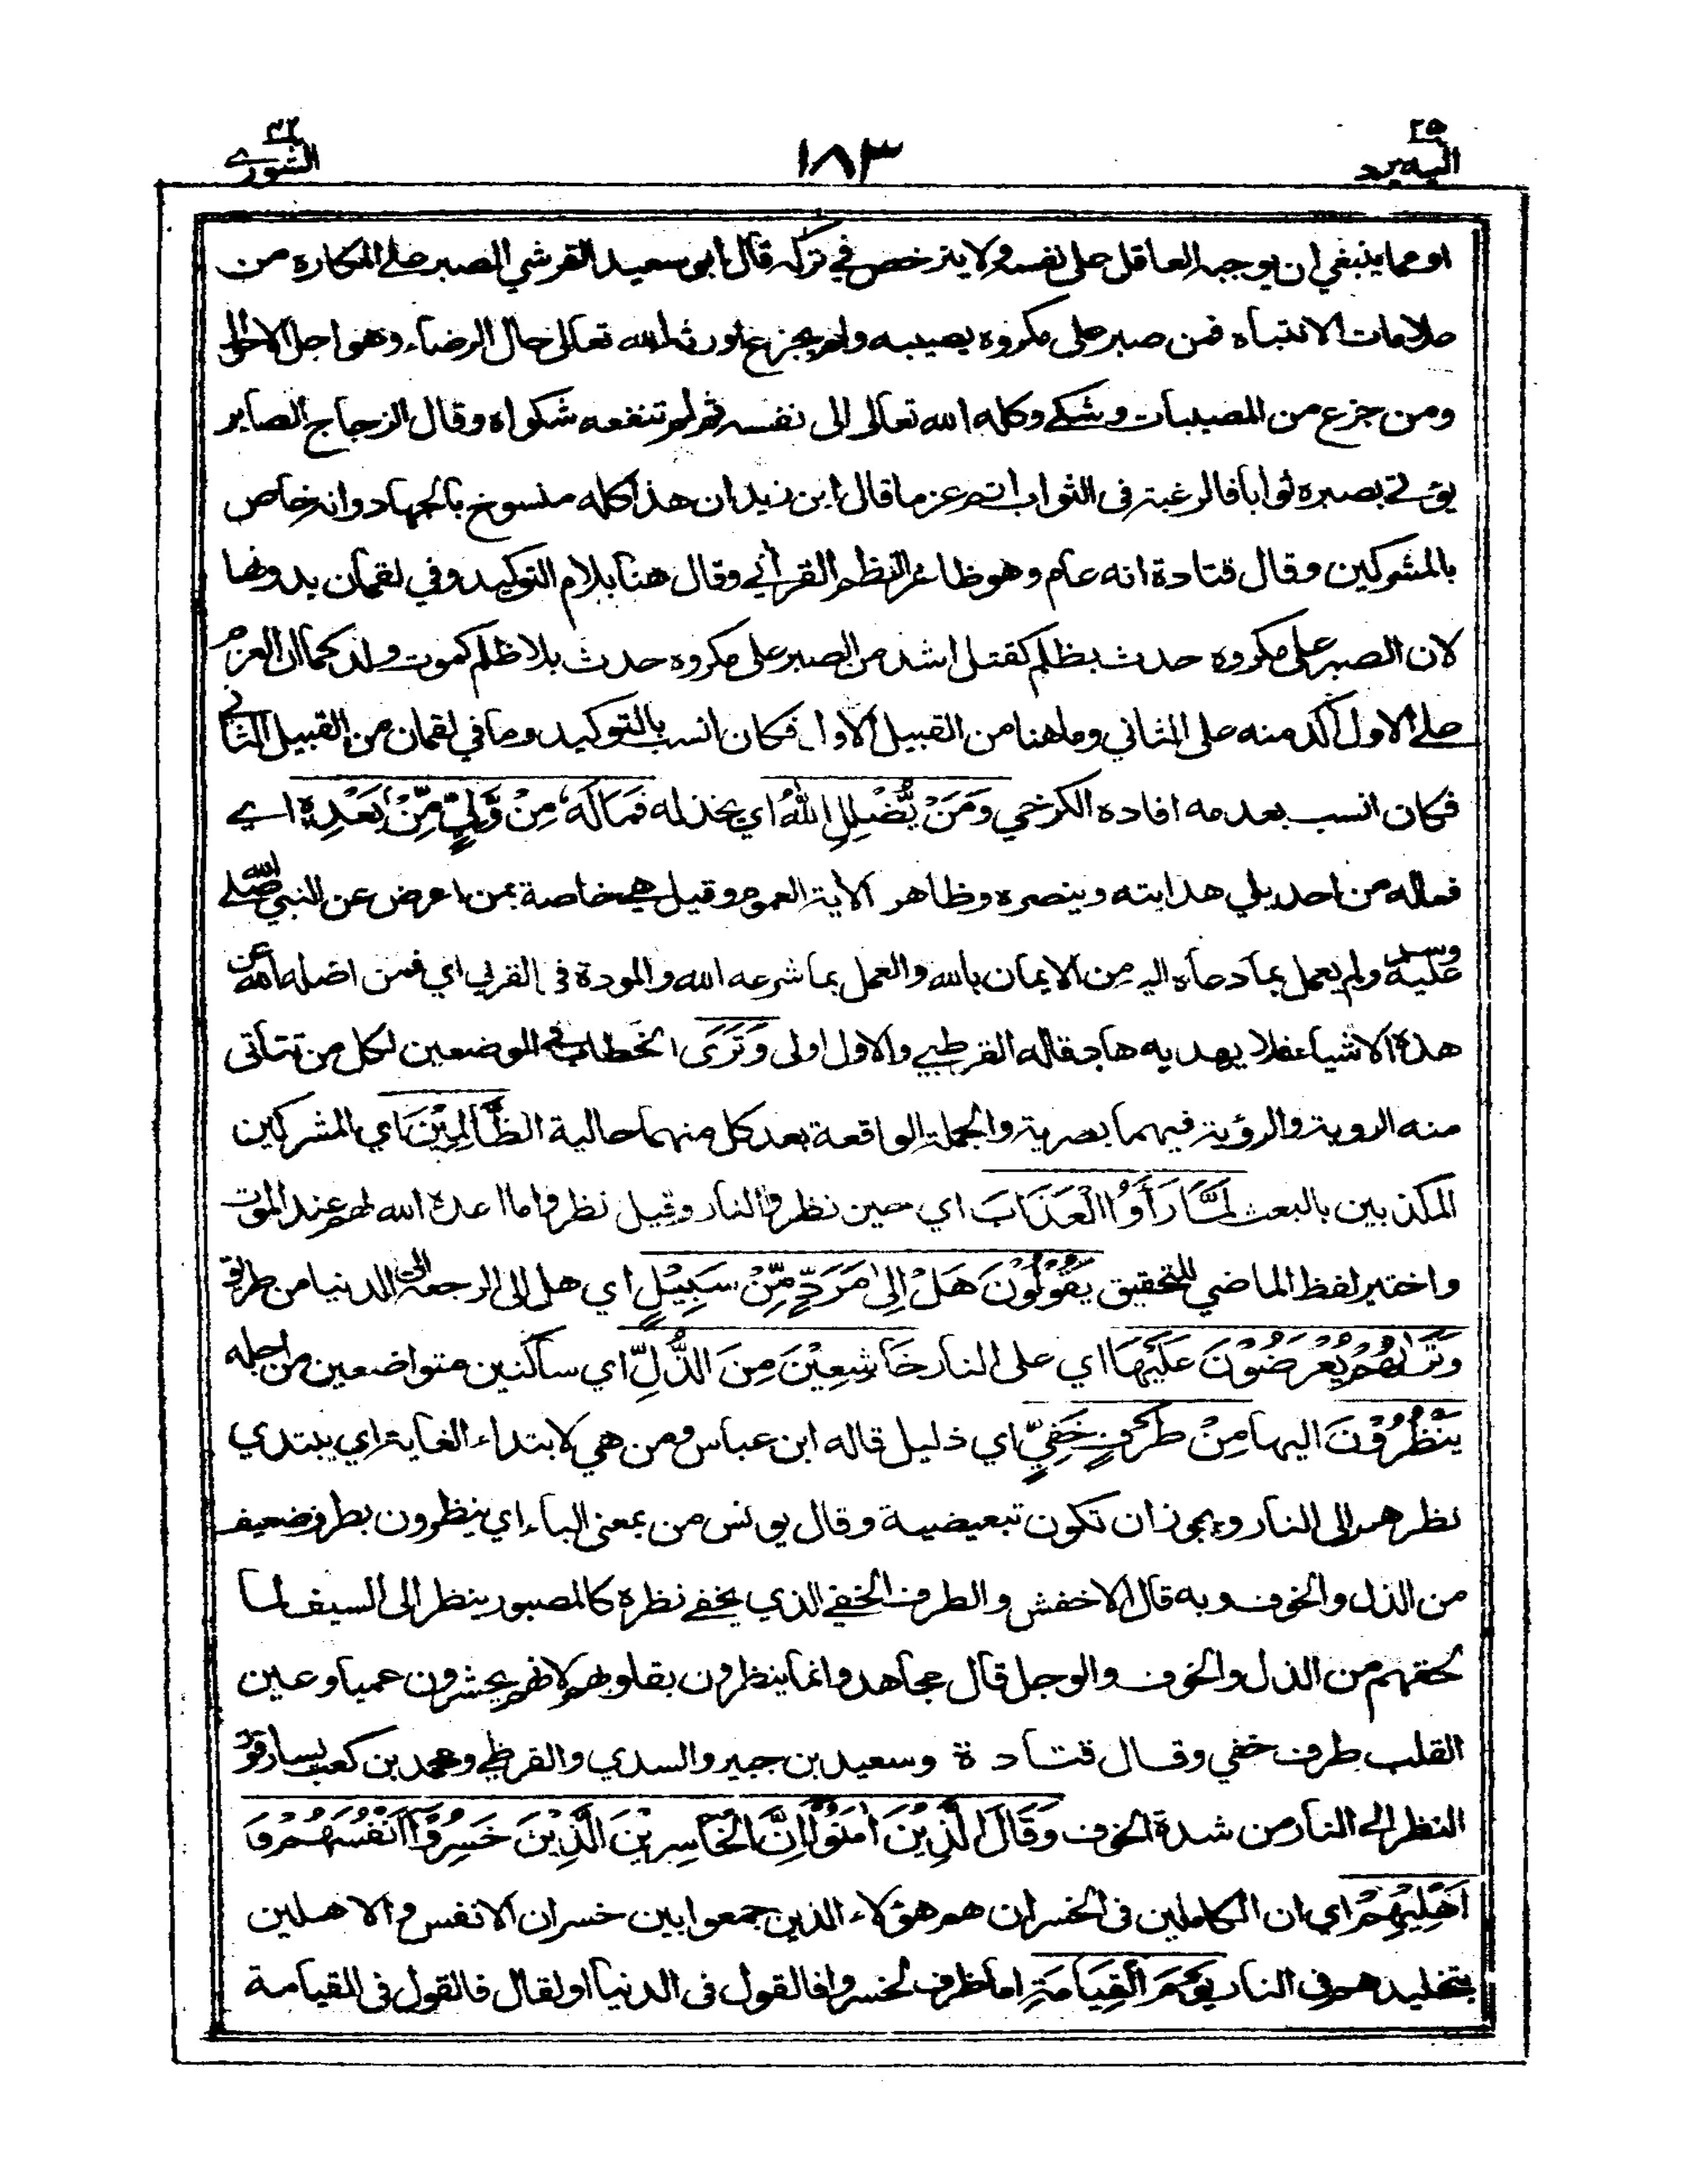 ٢٥
اليه يرد
١٨٣
٤٢
الشورى
او مما ينبغي ان يوجبه العاقل على نفسه ولا يترخص في تركه قال ابو سعيد القرشي الصبر على المكاره من
علامات الانتباه فمن صبر على مكروه يصيبه ولم يجزع اورثه الله تعالى حال الرضاء وهو اجل الاحوال
ومن جزع من المصيبات وشكى وكله الله تعالى الى نفسه ثم لم تنفعه شكواه وقال الزجاج الصابر
يؤتى بصبره ثوابا فالرغبة فى الثواب اتم عزما قال ابن زيد ان هذا كله منسوخ بالجهاد وانه خاص
بالمشركين وقال قتادة انه عام وهو ظاهر النظم القرآني وقال هنا بلام التوكيد وفي لقمان بدونها
لان الصبر على مكروه حدث بظلم كقتل اشد من الصبر على مكروه حدث بلا ظلم كموت ولد كما ان العزم
على الاول آكد منه على الثاني وما هنا من القبيل الاول فكان انسب بالتوكيد وما في لقمان من القبيل الثاني
فكان انسب بعدمه افاده الكرخي وَمَنْ يُّضْلِلِ اللّٰهُ اي يخذله فَمَا لَهٗ مِنْ وَّلِيٍّ مِّنْ بَعْدِهٖ اي
فماله من احد يلي هدايته وينصره وظاهر الاية العموم وقيل هي خاصة بمن اعرض عن النبي صلى الله
عليه وسلم ولم يعمل بما دعاه اليه من الايمان بالله والعمل بما شرعه الله والمودة فى القربى اي فمن اضله الله عن
هذه الاشياء فلا يهديه هاد قاله القرطبي والاول اولى وَتَرَى الخطاب فى الموضعين لكل من تتأتى
منه الروية والرؤية فيهما بصرية والجملة الواقعة بعد كل منهما حالية الظَّالِمِيْنَ اي المشركين
المكذبين بالبعث لَمَّا رَأَوُا الْعَذَابَ اي حين نظروا النار وقيل نظروا ما اعده الله لهم عند الموت
واختير لفظ الماضي للتحقيق يَقُوْلُوْنَ هَلْ اِلٰى مَرَدٍّ مِّنْ سَبِيْلٍ اي هل الى الرجعة الى الدنيا من طريق
وَتَرٰىهُمْ يُعْرَضُوْنَ عَلَيْهَا اي على النار خَاشِعِيْنَ مِنَ الذُّلِّ اي ساكنين متواضعين من اجله
يَنْظُرُوْنَ اليها مِنْ طَرْفٍ خَفِيٍّ اي ذليل قاله ابن عباس ومن هي لابتداء الغاية اي يبتدي
نظرهم الى النار ويجوز ان تكون تبعيضية وقال يونس من بمعنى الباء اي ينظرون بطرف ضعيف
من الذل والخوف وبه قال الاخفش والطرف الخفي الذي يخفى نظره كالمصبور ينظر الى السيف لما
لحقهم من الذل والخوف والوجل قال مجاهد وانما ينظرون بقلوبهم لانهم يحشرون عميا وعين
القلب طرف خفي وقال قتادة وسعيد بن جبير والسدي والقرظي ومحمد بن كعب يسارقون
النظر الى النار من شدة الخوف وَقَالَ الَّذِيْنَ اٰمَنُوْا اِنَّ الْخَاسِرِيْنَ الَّذِيْنَ خَسِرُوْا اَنْفُسَهُمْ وَ
اَهْلِيْهِمْ اي ان الكاملين فى الخسران هم هؤلاء الذين جمعوا بين خسران الانفس والاهلين
بتخليدهم فى النار يَوْمَ الْقِيَامَةِ اما ظرف لخسروا فالقول فى الدنيا او لقال فالقول فى القيامة